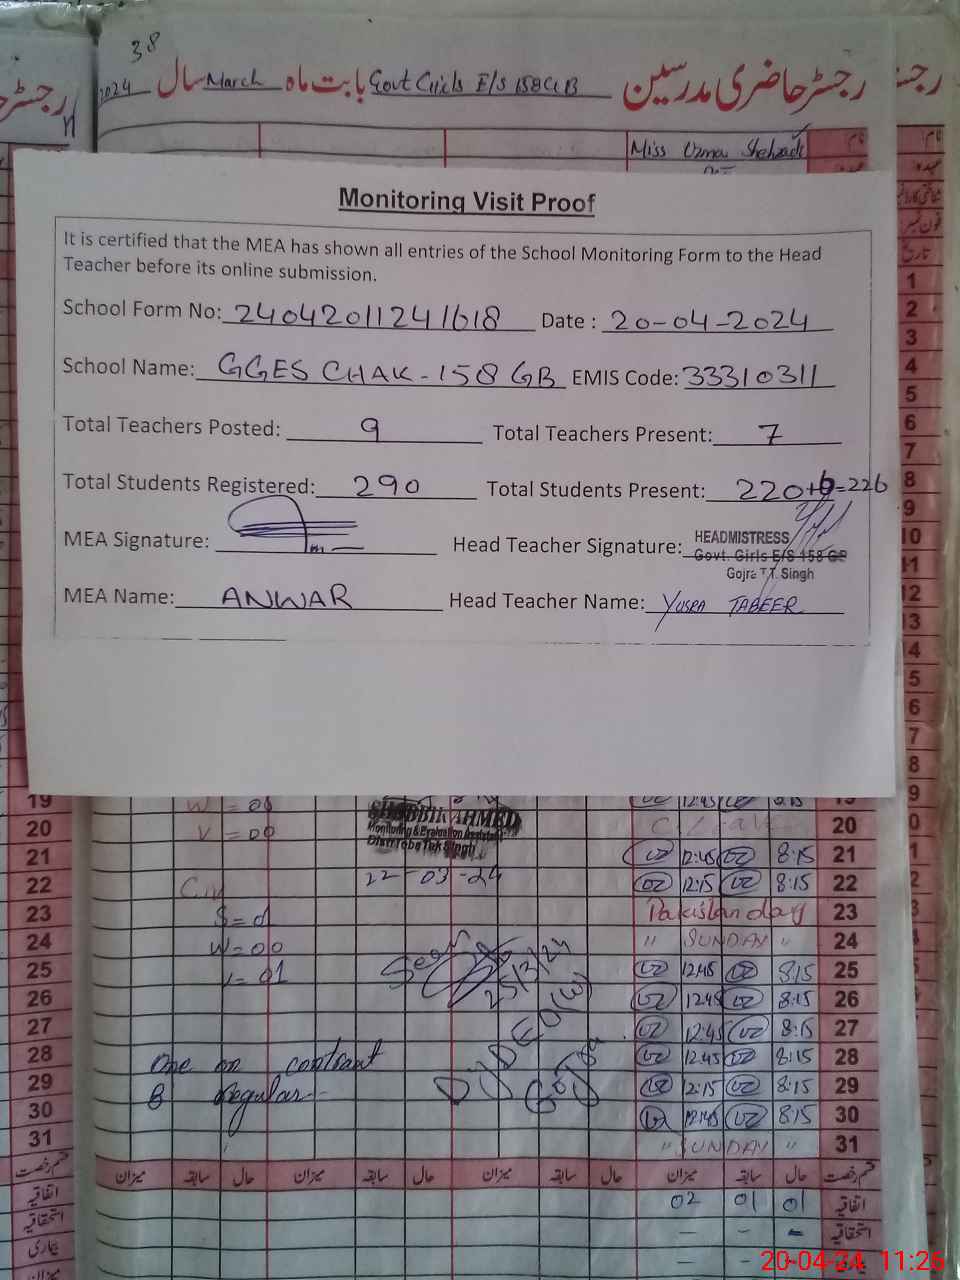 38
رجسٹر حاضری مدرسین Govt Girls E/S 158 GB بابت ماہ March سال 2024
Miss Uzma Shehzadi
Monitoring Visit Proof
It is certified that the MEA has shown all entries of the School Monitoring Form to the Head
Teacher before its online submission.
School Form No: 24042011241618 Date : 20-04-2024
School Name: GGES CHAK-158 GB EMIS Code: 33310311
Total Teachers Posted: 9 Total Teachers Present: 7
Total Students Registered: 290 Total Students Present: 220+6=226
MEA Signature: Head Teacher Signature:
HEADMISTRESS
Govt. Girls E/S 158 GB
Gojra T.T. Singh
MEA Name: ANWAR Head Teacher Name: YUSRA TABEER
19 W = 01 12:45 8:15
20 V = 00 SHABBIR AHMED C. Leave 20
Monitoring & Evaluation Assistant
Distt Toba Tek Singh
21 12:45 8:15 21
22 22-03-24 12:15 8:15 22
23 S = 01 Pakistan day 23
24 W = 00 " SUNDAY " 24
25 V = 01 Seen 25/3/24 12:45 8:15 25
26 12:45 8:15 26
27 Dy DEO (W) 12:45 8:15 27
28 One on contract Gojra 12:45 8:15 28
29 8 Regular 12:15 8:15 29
30 12:45 8:15 30
31 " SUNDAY " 31
قسم رخصت حال سابقہ میزان حال سابقہ میزان حال سابقہ میزان
اتفاقیہ 01 01 02
استحقاقیہ - - -
بیماری
میزان
20-04-24 11:25